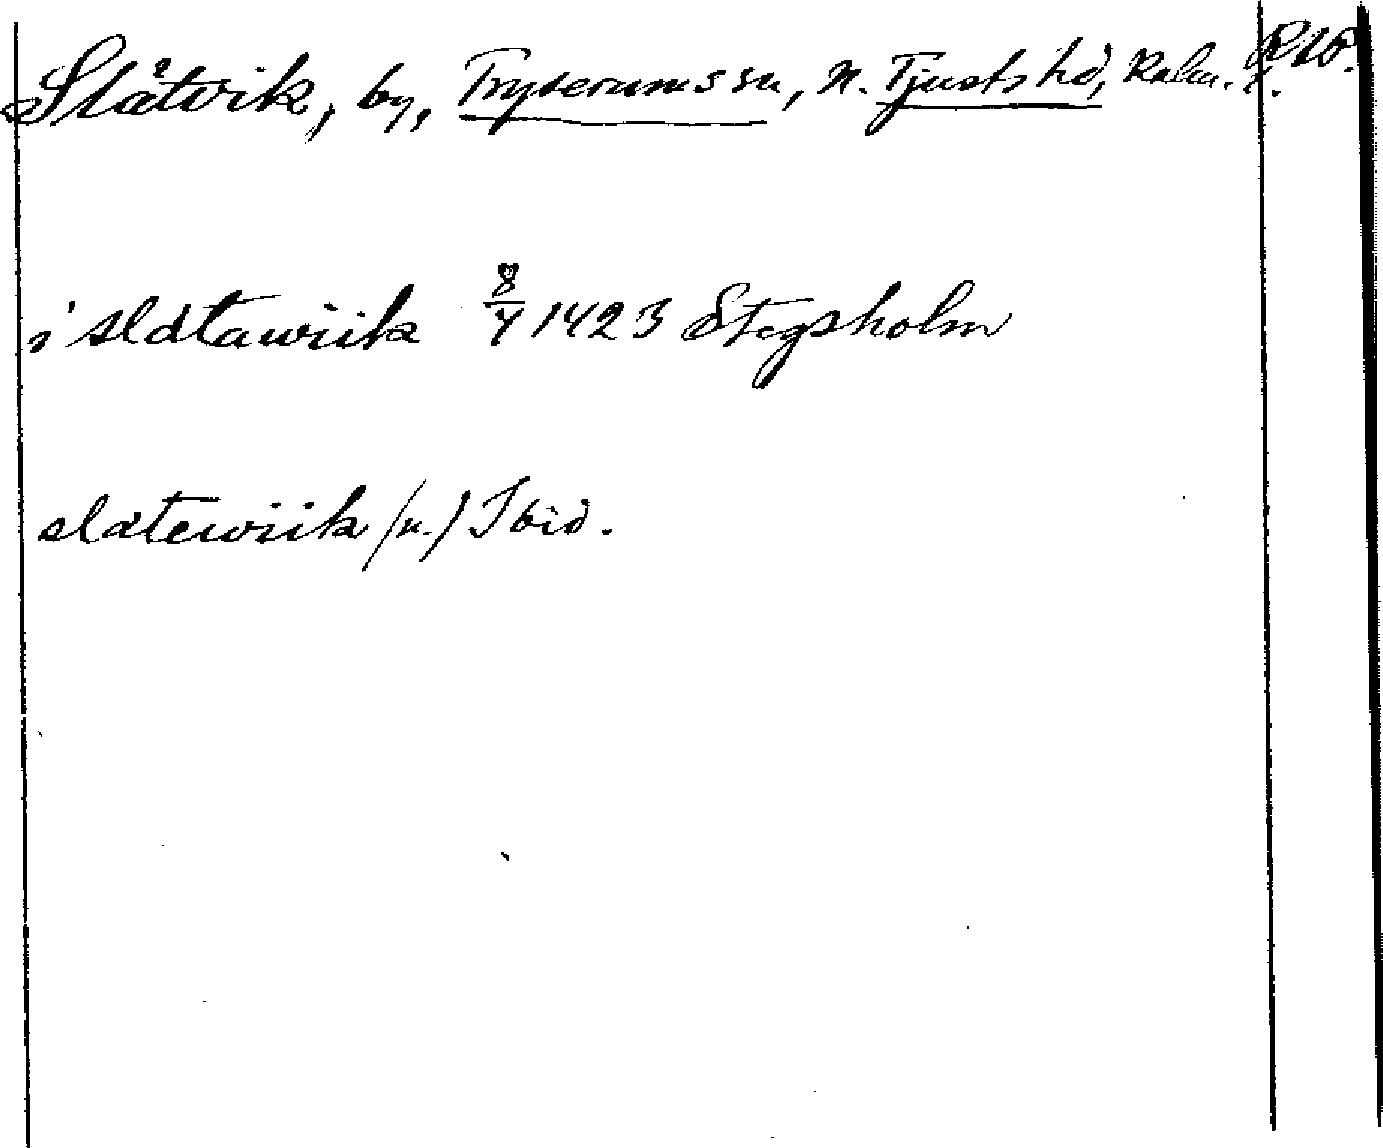 Slåtvik, by, Tryserums sn, N. Tjusts hd, Kalm. l.
i slatawiik 8/4 1423 Stegsholm
slatewiik (u.) Ibid.